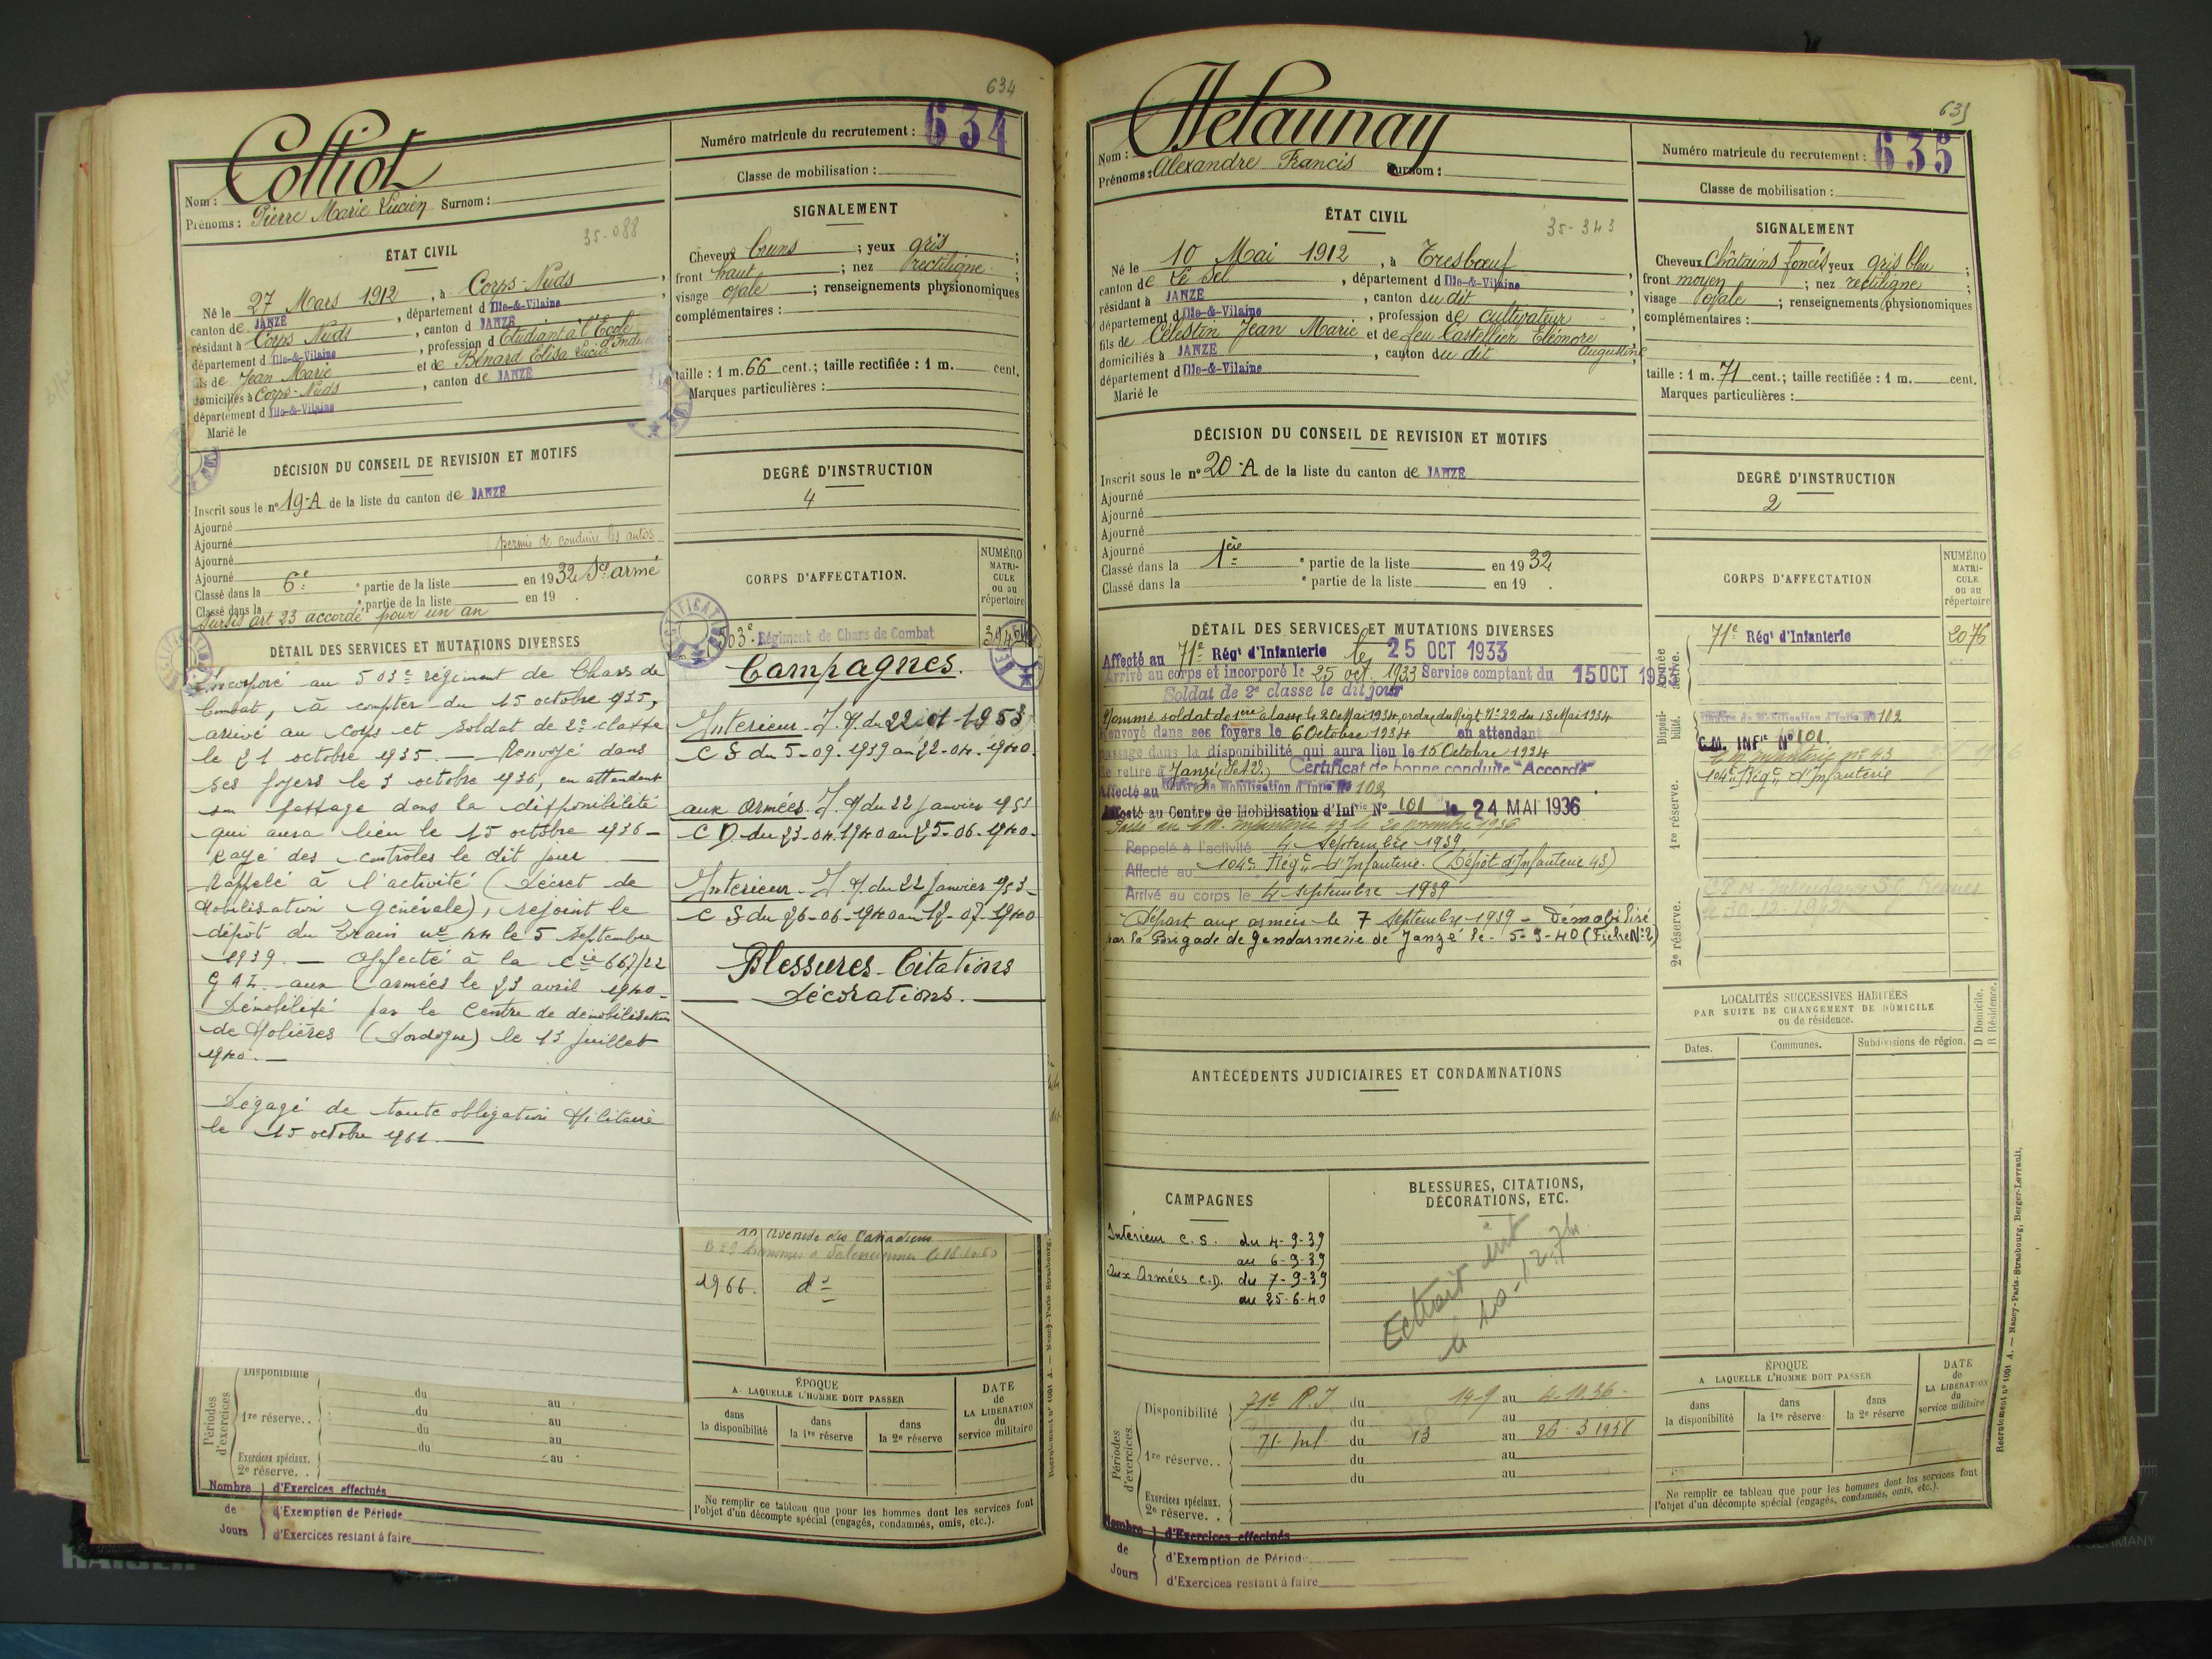 634
Numéro matricule du recrutement : 634
Classe de mobilisation :
Nom : Colliot
Prénoms : Pierre Marie Lucien Surnom :
35-088
ÉTAT CIVIL
Né le 27 Mars 1912, à Corps-Nuds
canton de JANZÉ, département d Ille-&-Vilaine
résidant à Corps Nuds, canton d JANZÉ
département d Ille-&-Vilaine, profession d Etudiant à l'Ecole
fils de Jean Marie et de Bénard Elisa Lucie
domiciliés à Corps-Nuds, canton de JANZÉ
département d Ille-&-Vilaine
Marié le
SIGNALEMENT
Cheveux bruns ; yeux gris ;
front haut ; nez rectiligne ;
visage ovale ; renseignements physionomiques
complémentaires :
taille : 1 m. 66 cent. ; taille rectifiée : 1 m. cent.
Marques particulières :
DÉCISION DU CONSEIL DE REVISION ET MOTIFS
Inscrit sous le n° 19-A de la liste du canton de JANZÉ
Ajourné
Ajourné permis de conduire les autos
Ajourné
Ajourné
Classé dans la 6e ° partie de la liste en 1932 Sce armé
Classé dans la ° partie de la liste en 19 .
Sursis art 23 accordé pour un an
DEGRÉ D'INSTRUCTION
4
CORPS D'AFFECTATION.
NUMÉRO MATRI-CULE ou au répertoire
503e Régiment de Chars de Combat
DÉTAIL DES SERVICES ET MUTATIONS DIVERSES
Incorporé au 503e régiment de Chars de
Combat, à compter du 15 octobre 1935,
arrivé au corps et soldat de 2e classe
le 21 octobre 1935. — Renvoyé dans
ses foyers le 3 octobre 1936, en attendant
son passage dans la disponibilité
qui aura lieu le 15 octobre 1936 -
Rayé des contrôles le dit jour —
Rappelé à l'activité (Décret de
Mobilisation Générale), rejoint le
dépôt du Train no 44 le 5 Septembre
1939. — Affecté à la Cie 667/22
aux armées le 23 avril 1940 -
Démobilisé par le Centre de démobilisation
de Molières (Dordogne) le 13 juillet
1940. —
Dégagé de toute obligation Militaire
le 15 octobre 1961. —
Campagnes.
Intérieur
C S du 5-09-1939 au 22-04-1940
aux Armées
C D. du 23-04-1940 au 25-06-1940-
Intérieur
C S du 26-06-1940 au 12-07-1940
Blessures - Citations
Décorations.
Avenue des Canadiens
1966. d°
Périodes d'exercices
Disponibilité
du au
1re réserve. . du au
du au
du au
Exercices spéciaux.
2e réserve. .
Nombre de Jours
d'Exercices effectués
d'Exemption de Période
d'Exercices restant à faire
ÉPOQUE
A LAQUELLE L'HOMME DOIT PASSER
dans la disponibilité
dans la 1re réserve
dans la 2e réserve
DATE de LA LIBÉRATION du service militaire
Ne remplir ce tableau que pour les hommes dont les services font
l'objet d'un décompte spécial (engagés, condamnés, omis, etc.).
Recrutement n° 1001 A. — Nancy-Paris-Strasbourg,
635
Numéro matricule du recrutement : 635
Classe de mobilisation :
Nom : Delaunay
Prénoms : Alexandre Francis Surnom :
35-343
ÉTAT CIVIL
Né le 10 Mai 1912, à Tresbœuf
canton de Le Sel, département d Ille-&-Vilaine
résidant à JANZÉ, canton du dit
département d Ille-&-Vilaine, profession de cultivateur
fils de Célestin Jean Marie et de feu Castellier Eléonore
Augustine
domiciliés à JANZÉ, canton du dit
département d Ille-&-Vilaine
Marié le
SIGNALEMENT
Cheveux Châtains foncés yeux gris bleu ;
front moyen ; nez rectiligne ;
visage ovale ; renseignements physionomiques
complémentaires :
taille : 1 m. 71 cent. ; taille rectifiée : 1 m. cent.
Marques particulières :
DÉCISION DU CONSEIL DE REVISION ET MOTIFS
Inscrit sous le n° 20-A de la liste du canton de JANZÉ
Ajourné
Ajourné
Ajourné
Ajourné
Classé dans la 1ère ° partie de la liste en 1932
Classé dans la ° partie de la liste en 19 .
DEGRÉ D'INSTRUCTION
2
CORPS D'AFFECTATION
NUMÉRO MATRI-CULE ou au répertoire
Armée active.
71e Régt d'Infanterie 2076
Disponibilité.
Centre de Mobilisation d'Infie No 102
C.M. INFie No 101
C.M. Infanterie no 43
1re réserve.
104e Régt d'Infanterie
2e réserve.
DÉTAIL DES SERVICES ET MUTATIONS DIVERSES
Affecté au 71e Régt d'Infanterie le 25 OCT 1933
Arrivé au corps et incorporé le 25 oct. 1933 Service comptant du 15 OCT 1933
Soldat de 2e classe le dit jour
Nommé soldat de 1ère classe le 20 Mai 1934, ordre du Régt No 22 du 18 Mai 1934
Renvoyé dans ses foyers le 6 Octobre 1934 en attendant
passage dans la disponibilité qui aura lieu le 15 Octobre 1934
Se retire à Janzé (I et V.) Certificat de bonne conduite "Accordé"
Affecté au Centre de Mobilisation d'Infie No 102
Affecté au Centre de Mobilisation d'Infie No 101 le 24 MAI 1936
Passé au C.M. Infanterie 43 le 20 novembre 1936
Rappelé à l'activité 4 Septembre 1939
Affecté au 104e Régt d'Infanterie. (Dépôt d'Infanterie 43)
Arrivé au corps le 4 septembre 1939
Départ aux armées le 7 Septembre 1939 - Démobilisé
par la Brigade de Gendarmerie de Janzé le 5-9-40 (Fiche No 2)
LOCALITÉS SUCCESSIVES HABITÉES
PAR SUITE DE CHANGEMENT DE DOMICILE
ou de résidence.
Dates.
Communes.
Subdivisions de région.
D Domicile.
R Résidence.
ANTÉCÉDENTS JUDICIAIRES ET CONDAMNATIONS
CAMPAGNES
Intérieur C.S. du 4-9-39
au 6-9-39
Aux Armées C.D. du 7-9-39
au 25-6-40
BLESSURES, CITATIONS,
DÉCORATIONS, ETC.
Périodes d'exercices.
Disponibilité 71e R.I du 14-9 au 4.10.36-
du au
71- Inf du 13 au 26-3 1938
1re réserve. . du au
du au
Exercices spéciaux.
2e réserve. .
Nombre de Jours
d'Exercices effectués
d'Exemption de Période
d'Exercices restant à faire
ÉPOQUE
A LAQUELLE L'HOMME DOIT PASSER
dans la disponibilité
dans la 1re réserve
dans la 2e réserve
DATE de LA LIBÉRATION du service militaire
Ne remplir ce tableau que pour les hommes dont les services font
l'objet d'un décompte spécial (engagés, condamnés, omis, etc.).
Recrutement n° 1001 A. — Nancy-Paris-Strasbourg, Berger-Levrault.